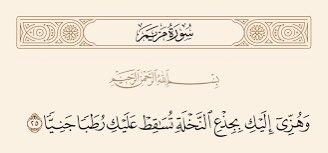 سُورَةُ مَرْيَم
بِسْمِ اللَّهِ الرَّحْمَٰنِ الرَّحِيمِ
وَهُزِّىٓ إِلَيْكِ بِجِذْعِ ٱلنَّخْلَةِ تُسَٰقِطْ عَلَيْكِ رُطَبًا جَنِيًّا ٢٥